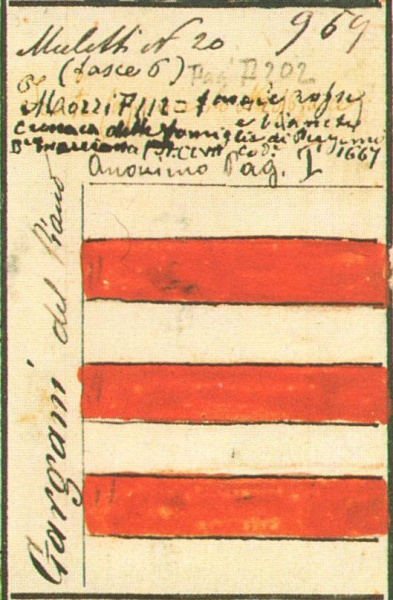 Muletti N 20 969
(fasce 6) Pag P 202
Mozzi P 112 = fascie rosse
e bianche
Cronaca delle famiglie di
1667
P. CLVII Cod:
Anonimo Pag. I
Gargani del Piano